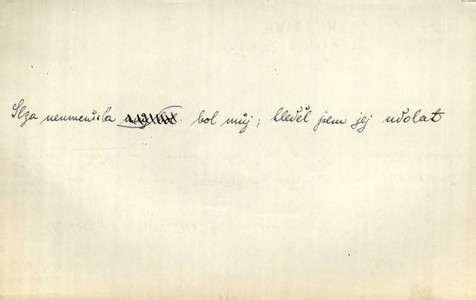 Slza neumenšila bol můj; hleděl jsem jej udolat